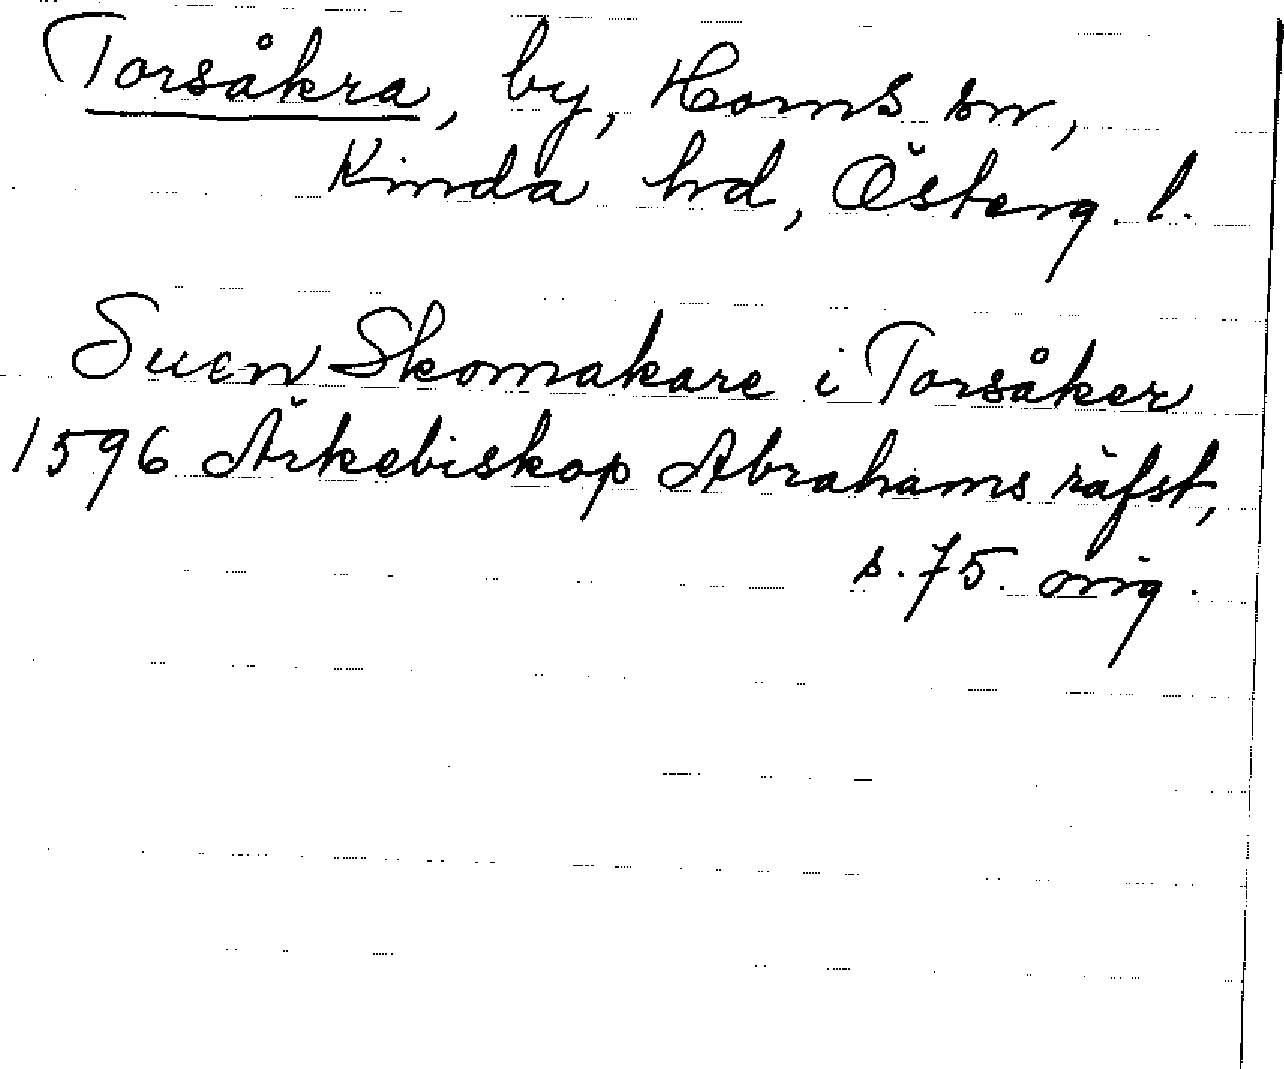 Torsåkra, by, Horns sn,
Kinda hd, Österg. l.
Suen Skomakare i Torsåker
1596 Ärkebiskop Abrahams räfst,
s. 75. orig.